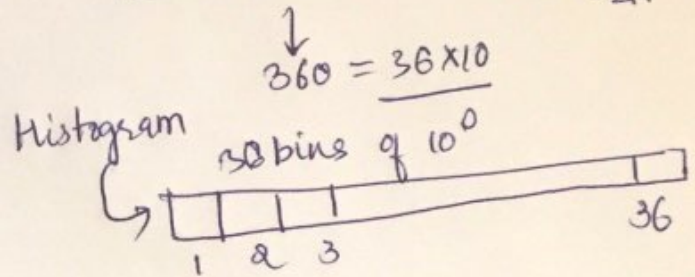 360 = 36x10
Histogram
bins of 10°
1 2 3 36